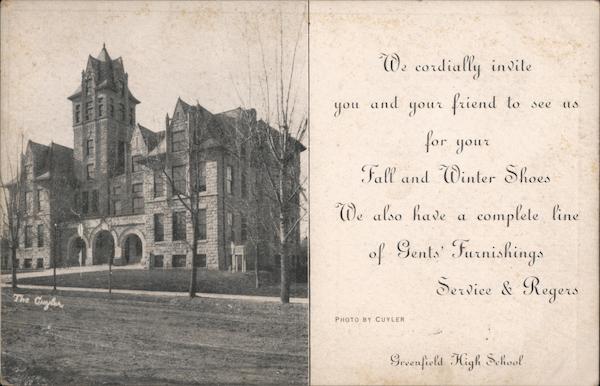 The Cuyler
We cordially invite
you and your friend to see us
for your
Fall and Winter Shoes
We also have a complete line
of Gents' Furnishings
Service & Regers
PHOTO BY CUYLER
Greenfield High School